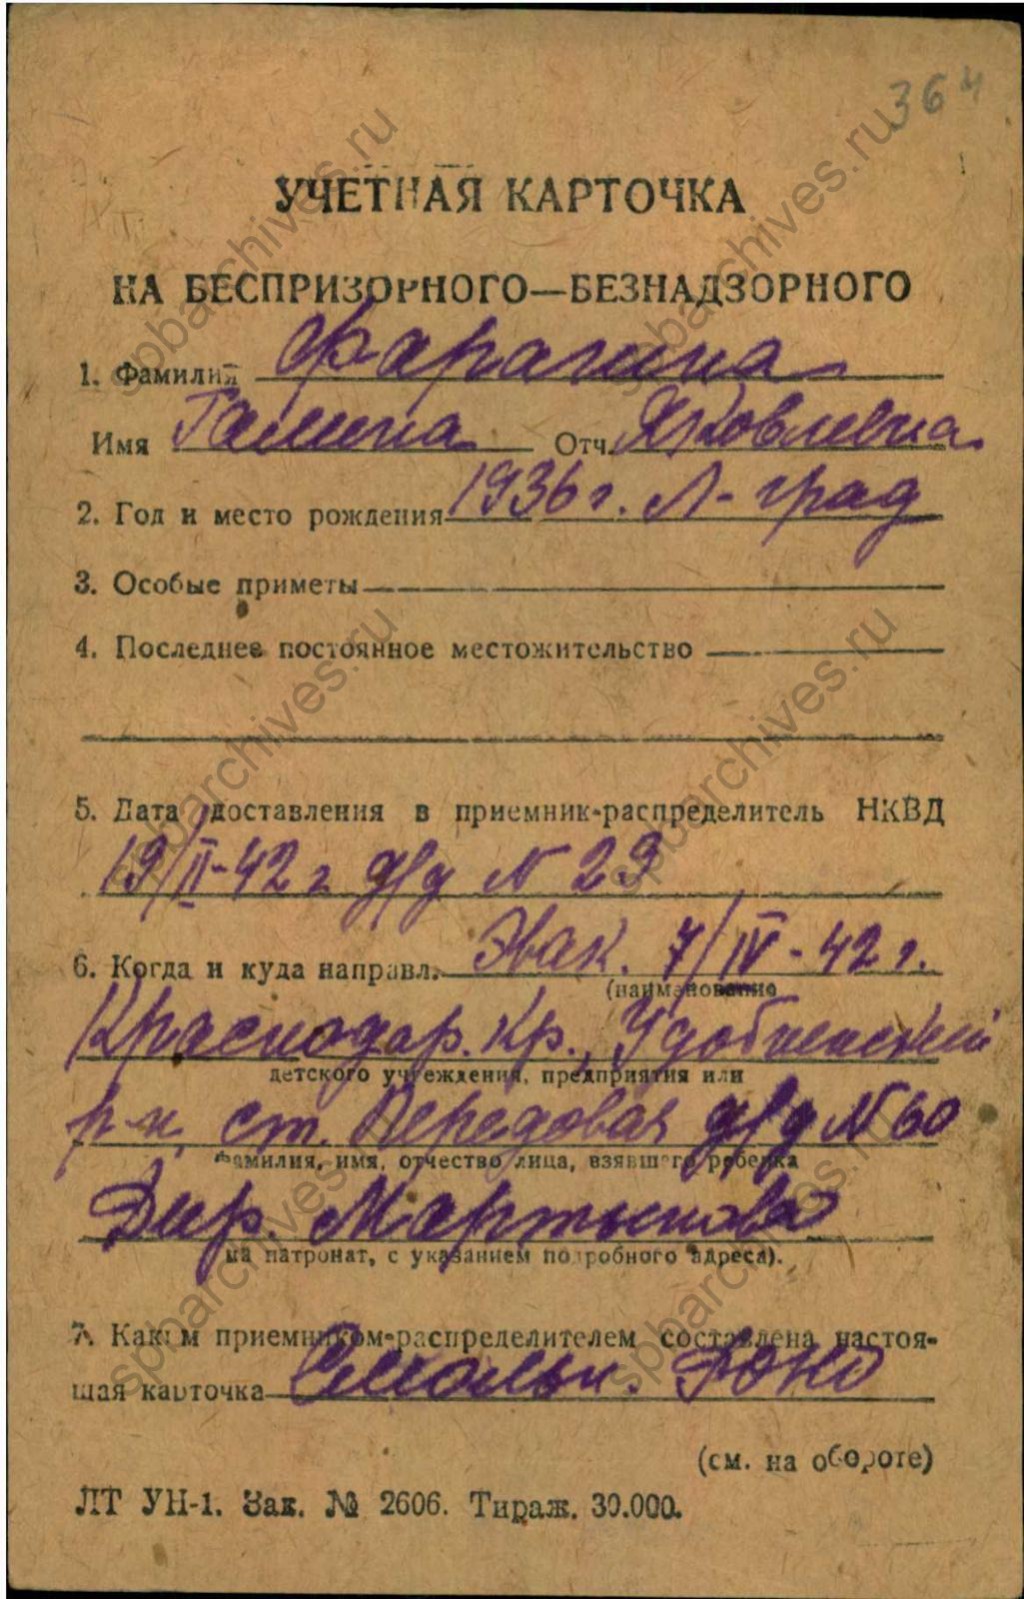 364
УЧЕТНАЯ КАРТОЧКА
НА БЕСПРИЗОРНОГО—БЕЗНАДЗОРНОГО
1. Фамилия Фарагина
Имя Галина Отч. Яковлевна
2. Год и место рождения 1936 г. Л-град
3. Особые приметы
4. Последнее постоянное местожительство
5. Дата доставления в приемник-распределитель НКВД
19/II-42 г д/д N 29
6. Когда и куда направл. Эвак. 7/IV-42 г.
(наименование
Краснодар. кр., Удобненский
детского учреждения, предприятия или
р-н, ст. Передовая д/д N 60
фамилия, имя, отчество лица, взявшего ребенка
Дир. Мартынова
на патронат, с указанием подробного адреса).
7. Каким приемником-распределителем составлена настоя-
щая карточка Смольн. РОНО
(см. на обороте)
ЛТ УН-1. Зак. № 2606. Тираж. 30.000.
spbarchives.ru
spbarchives.ru
spbarchives.ru
spbarchives.ru
spbarchives.ru
spbarchives.ru